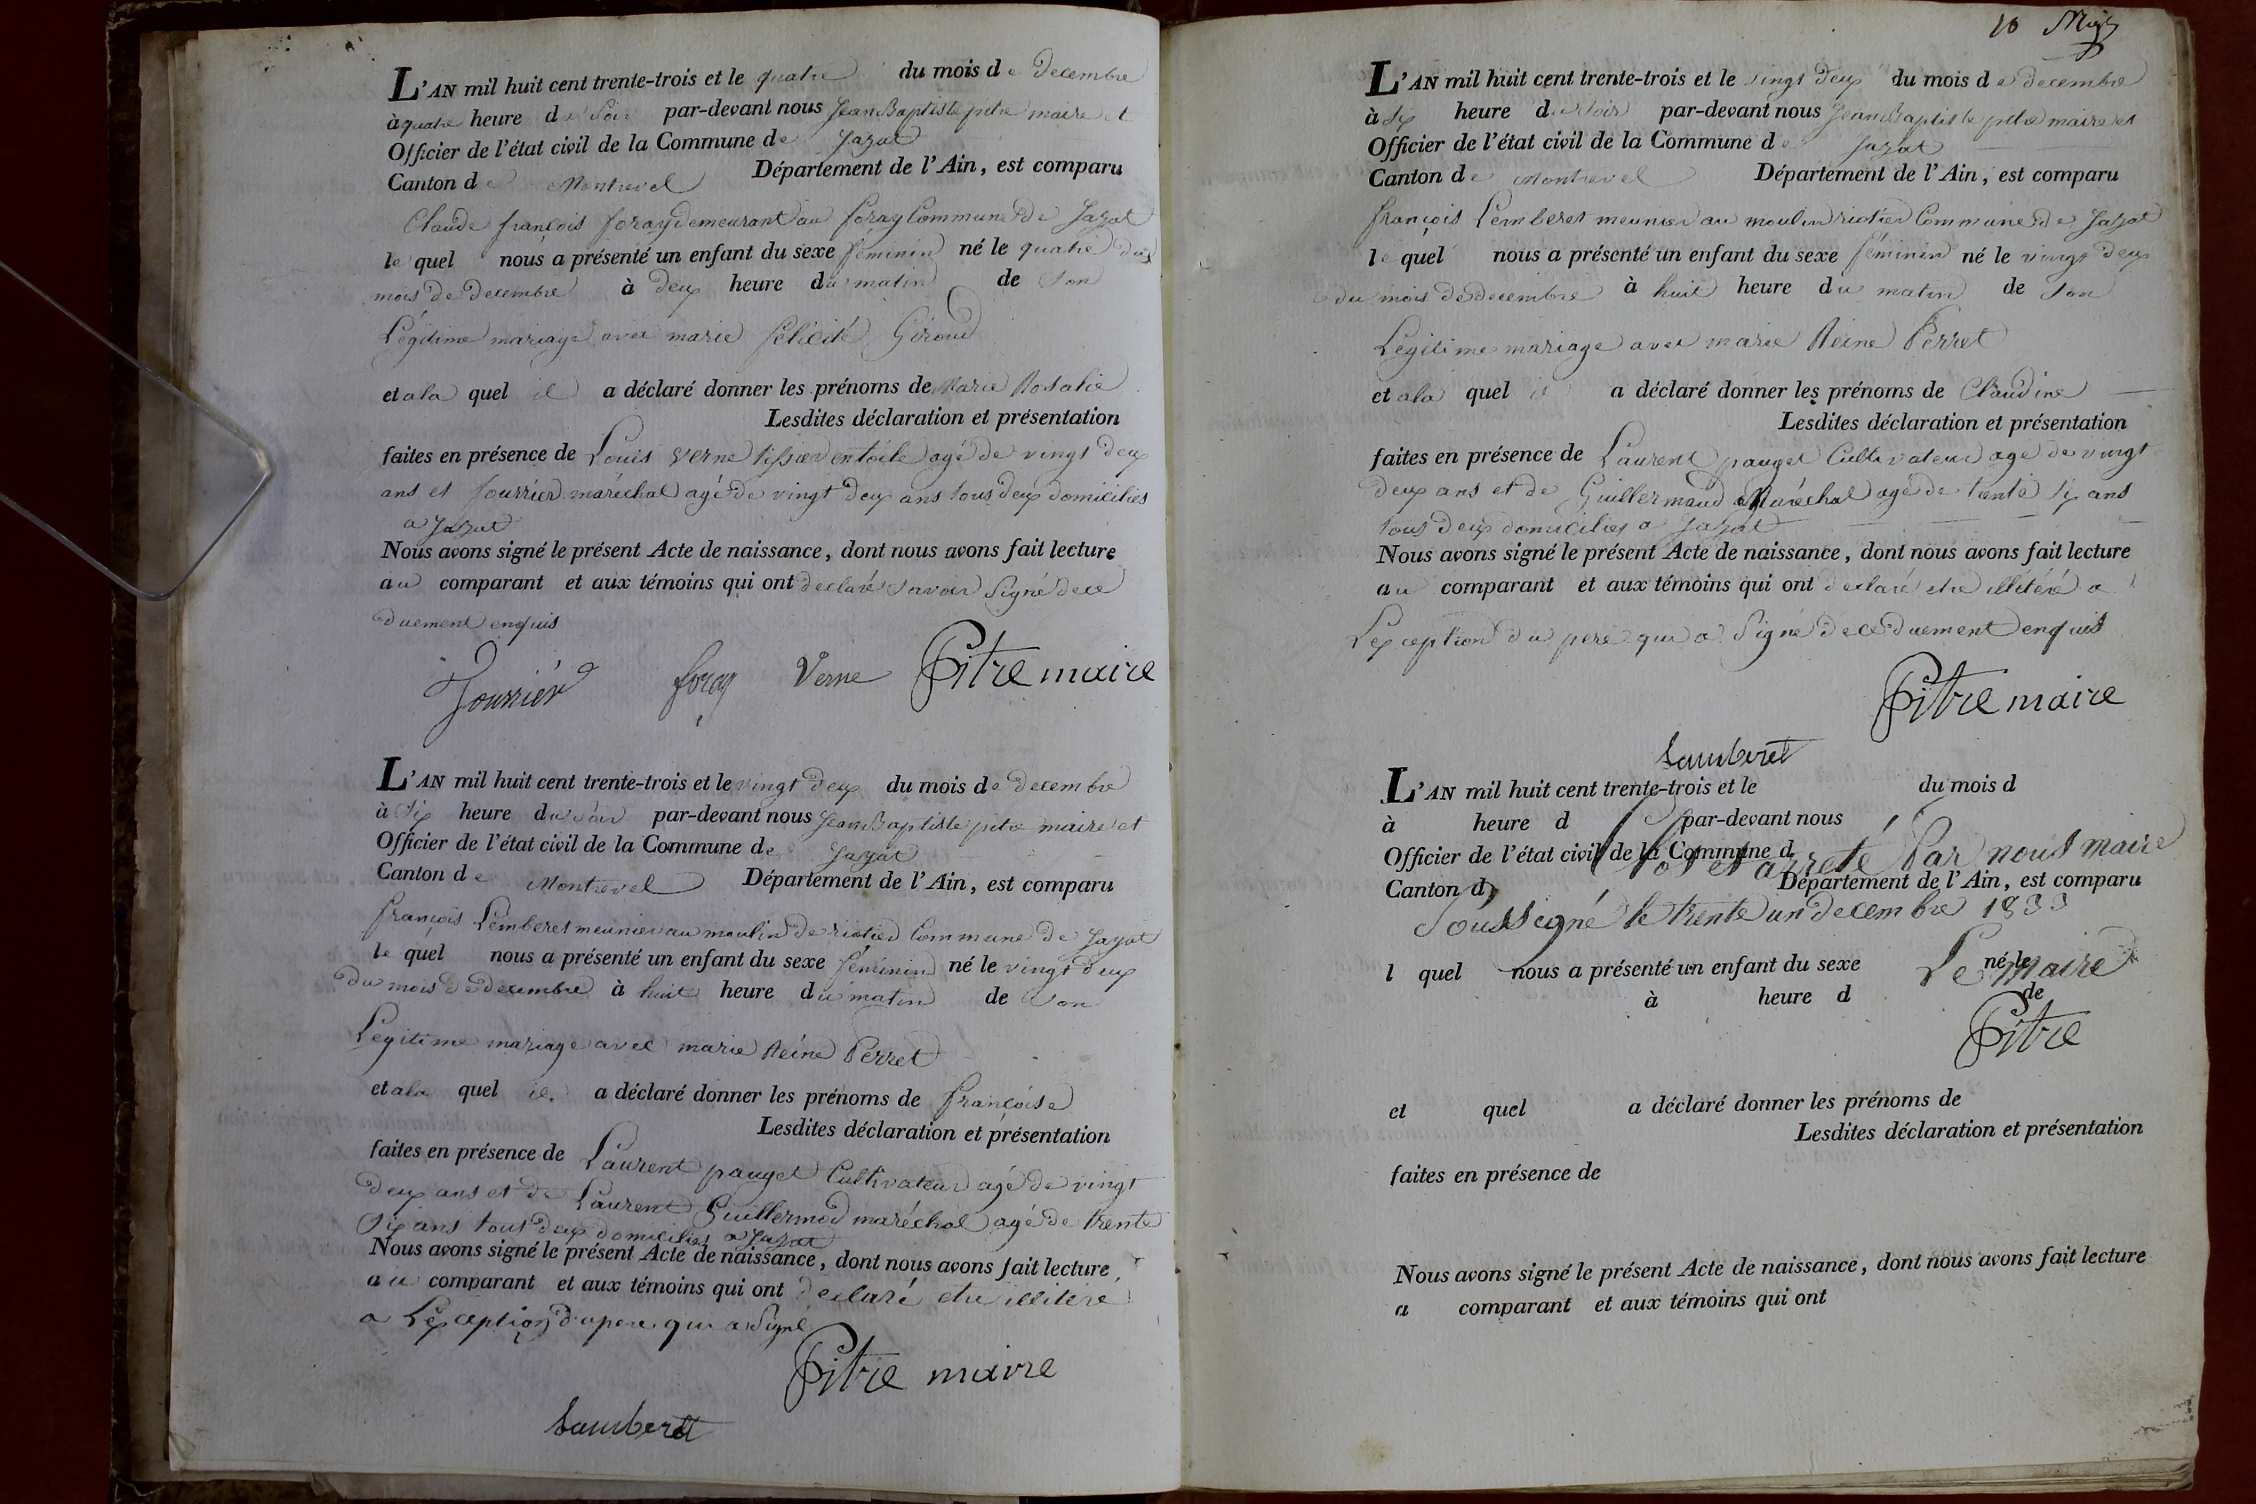 L'AN mil huit cent trente-trois et le quatre du mois de decembre
à quatre heure du Soir par-devant nous Jean Baptiste pitre maire et
Officier de l'état civil de la Commune de Jayat
Canton de Montrevel Département de l'Ain, est comparu
Claude françois foray demeurant au foray Commune de Jayat
le quel nous a présenté un enfant du sexe féminin né le quatre du
mois de decembre à deux heure du matin de Son
Légitime mariage avec marie félicité Giroud
et a la quel il a déclaré donner les prénoms de Marie Rosalie
Lesdites déclaration et présentation
faites en présence de Louis Verne tissier en toile agé de vingt deux
ans et fourrier maréchal agé de vingt deux ans tous deux domiciliés
a Jayat
Nous avons signé le présent Acte de naissance, dont nous avons fait lecture
au comparant et aux témoins qui ont declaré Savoir Signé de ce
duement enquis
fourrier foray Verne Pitre maire
L'AN mil huit cent trente-trois et le vingt deux du mois de decembre
à Six heure du soir par-devant nous Jean Baptiste pitre maire et
Officier de l'état civil de la Commune de Jayat
Canton de Montrevel Département de l'Ain, est comparu
françois Lemberet meunier au moulin de riotier Commune de Jayat
le quel nous a présenté un enfant du sexe féminin né le vingt deux
du mois de decembre à huit heure du matin de Son
Légitime mariage avec marie Reine Perret
et a la quel il a déclaré donner les prénoms de françoise
Lesdites déclaration et présentation
faites en présence de Laurent pauget Cultivateur agé de vingt
deux ans et de Laurent Guillermod maréchal agé de trente
Six ans tous deux domiciliés a Jayat
Nous avons signé le présent Acte de naissance, dont nous avons fait lecture
au comparant et aux témoins qui ont declaré etre illiteré
a Lexception du pere qui a Signé
Pitre maire
Lamberet
10
L'AN mil huit cent trente-trois et le vingt deux du mois de decembre
à Six heure du Soir par-devant nous Jean Baptiste pitre maire et
Officier de l'état civil de la Commune de Jayat
Canton de Montrevel Département de l'Ain, est comparu
françois Lemberet meunier au moulin riotier Commune de Jayat
le quel nous a présenté un enfant du sexe féminin né le vingt deux
du mois de decembre à huit heure du matin de Son
Légitime mariage avec marie Reine Perret
et a la quel il a déclaré donner les prénoms de Claudine
Lesdites déclaration et présentation
faites en présence de Laurent pauget Cultivateur agé de vingt
deux ans et de Guillermaud Maréchal agé de trente Six ans
tous deux domiciliés a Jayat
Nous avons signé le présent Acte de naissance, dont nous avons fait lecture
au comparant et aux témoins qui ont declaré etre illitéré a
Lexception du pere qui a Signé de ce duement enquis
Pitre maire
Lamberet
L'AN mil huit cent trente-trois et le du mois d
à heure d par-devant nous
Officier de l'état civil de la Commune d
Clos et arreté Par nous maire
Canton d Département de l'Ain, est comparu
Soussigné le trente un decembre 1833
l quel nous a présenté un enfant du sexe né le
Le maire
à heure d de
Pitre
et quel a déclaré donner les prénoms de
Lesdites déclaration et présentation
faites en présence de
Nous avons signé le présent Acte de naissance, dont nous avons fait lecture
a comparant et aux témoins qui ont